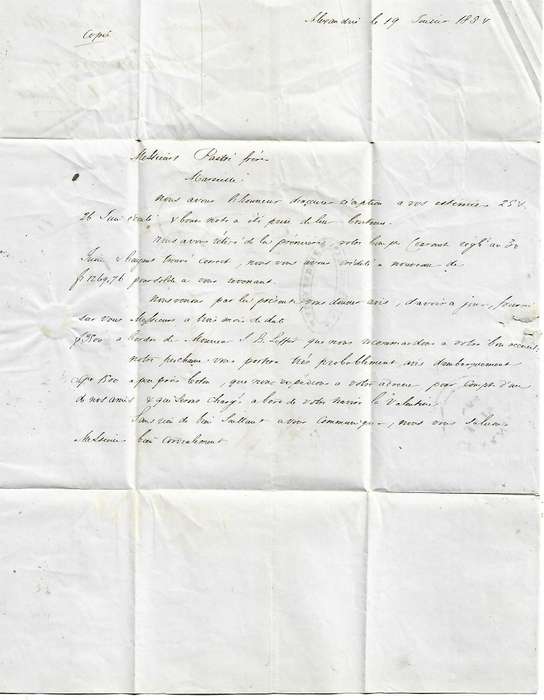 Alexandrie le 19 1834
Copie
Messieurs Pastré frères
Marseille
Nous avons l'honneur d'accuser réception a vos estimées 25 &
26 & bonne note a été prise de leur Contenu.
Nous avons retiré de la première, votre Compte Courant réglé au 30
Juin & l'ayant trouvé correct, nous vous avons crédité a nouveau de
1269,76 pour solde a vous revenant.
Nous venons par la présente vous donner avis, d'avoir a ce jour, fourni
sur vous Messieurs a trois mois de date
1500 a l'ordre de Monsieur J. B. que nous recommandons a votre bon accueil,
notre prochaine vous portera très probablement avis d'embarquement
150 a peu près Coton, que nous expédions a votre adresse pour Compte d'un
de nos amis & qui seront chargé a bord de votre navire le Valentine
Sans rien de bien saillant a vous Communiquer, nous vous saluons
Messieurs bien cordialement